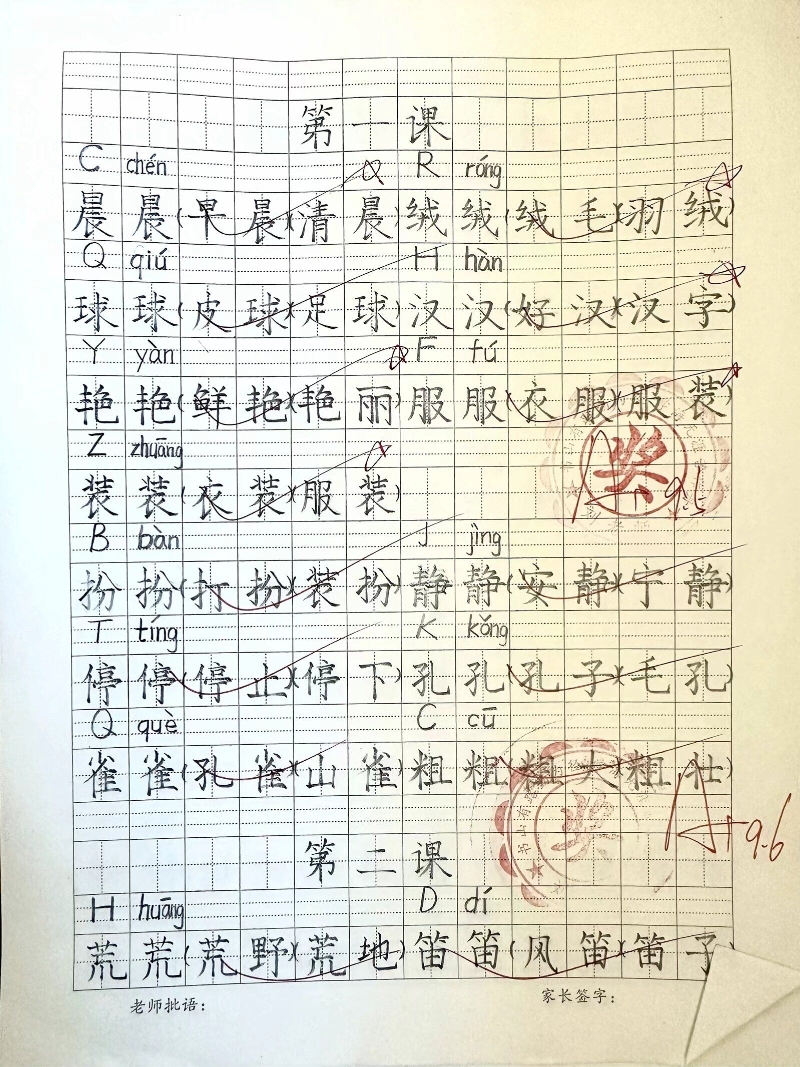 第一课
C chén R róng
晨晨(早晨)(清晨)绒绒(绒毛)(羽绒)
Q qiú H hàn
球球(皮球)(足球)汉汉(好汉)(汉字)
Y yàn F fú
艳艳(鲜艳)(艳丽)服服(衣服)(服装)
Z zhuāng
装装(衣装)(服装)
奖
A+ 9.5
B bàn J jìng
扮扮(打扮)(装扮)静静(安静)(宁静)
T tíng K kǒng
停停(停止)(停下)孔孔(孔子)(毛孔)
Q què C cū
雀雀(孔雀)(山雀)粗粗(粗大)(粗壮)
书山有路
奖
A+ 9.6
第二课
H huāng D dí
荒荒(荒野)(荒地)笛笛(风笛)(笛子
老师批语: 家长签字: